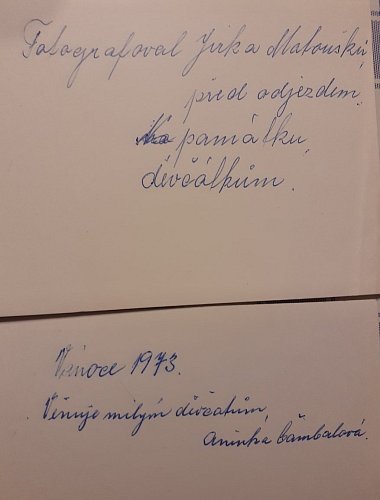 Fotografoval Jirka Matoušků
před odjezdem.
Na památku
děvčátkům.
Vánoce 1973.
Věnuje milým děvčatům,
Aninka Čambalová.